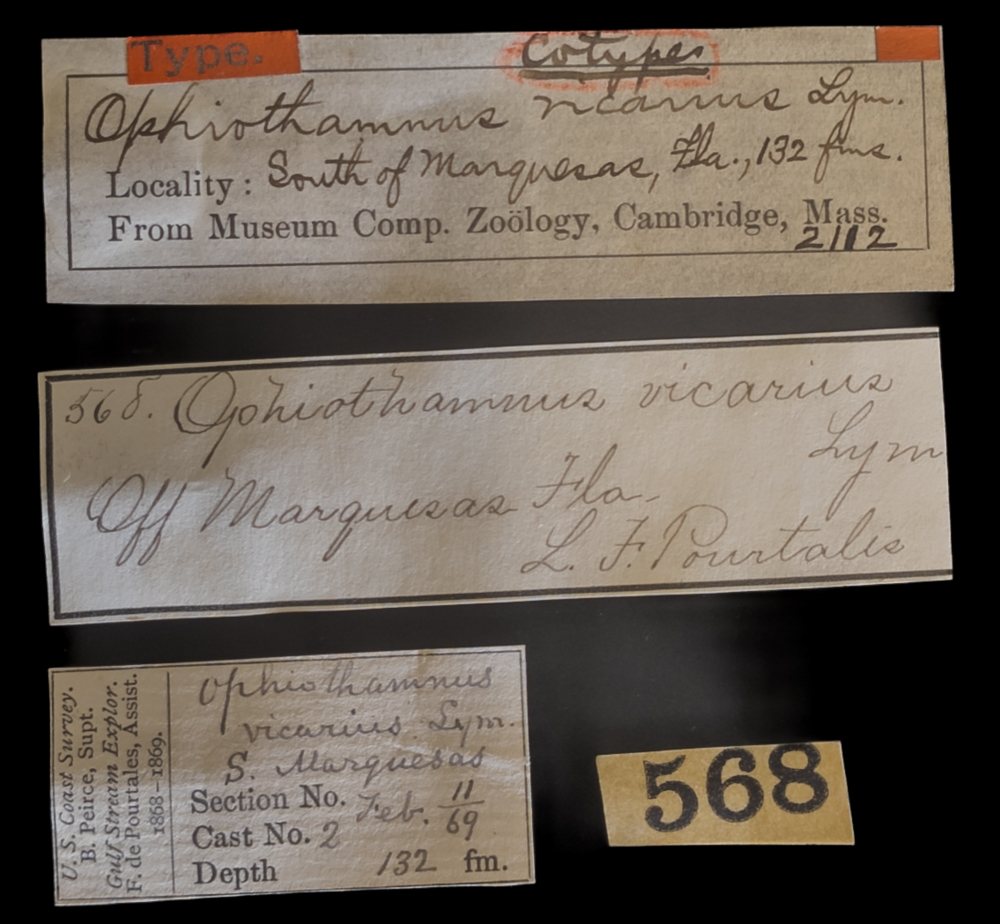 Type.
Cotypes
Ophiothamnus vicarius Lym.
Locality : South of Marquesas, Fla., 132 fms.
From Museum Comp. Zoölogy, Cambridge, Mass.
2112
568. Ophiothamnus vicarius
Lym
Off Marquesas Fla.
L. F. Pourtalis
U. S. Coast Survey.
B. Peirce, Supt.
Gulf Stream Explor.
F. de Pourtales, Assist.
1868–1869.
Ophiothamnus
vicarius Lym.
S. Marquesas
Section No. Feb. 11/69
Cast No. 2
Depth 132 fm.
568